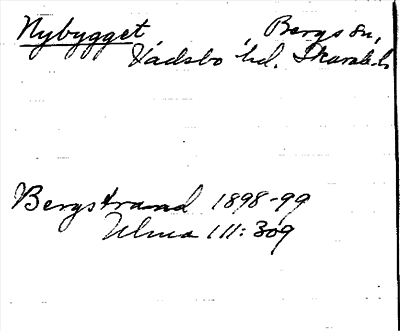 Nybygget, , Bergs sn,
Vadsbo hd. Skarab. l.
Bergstrand 1898-99
Ulma 111:309